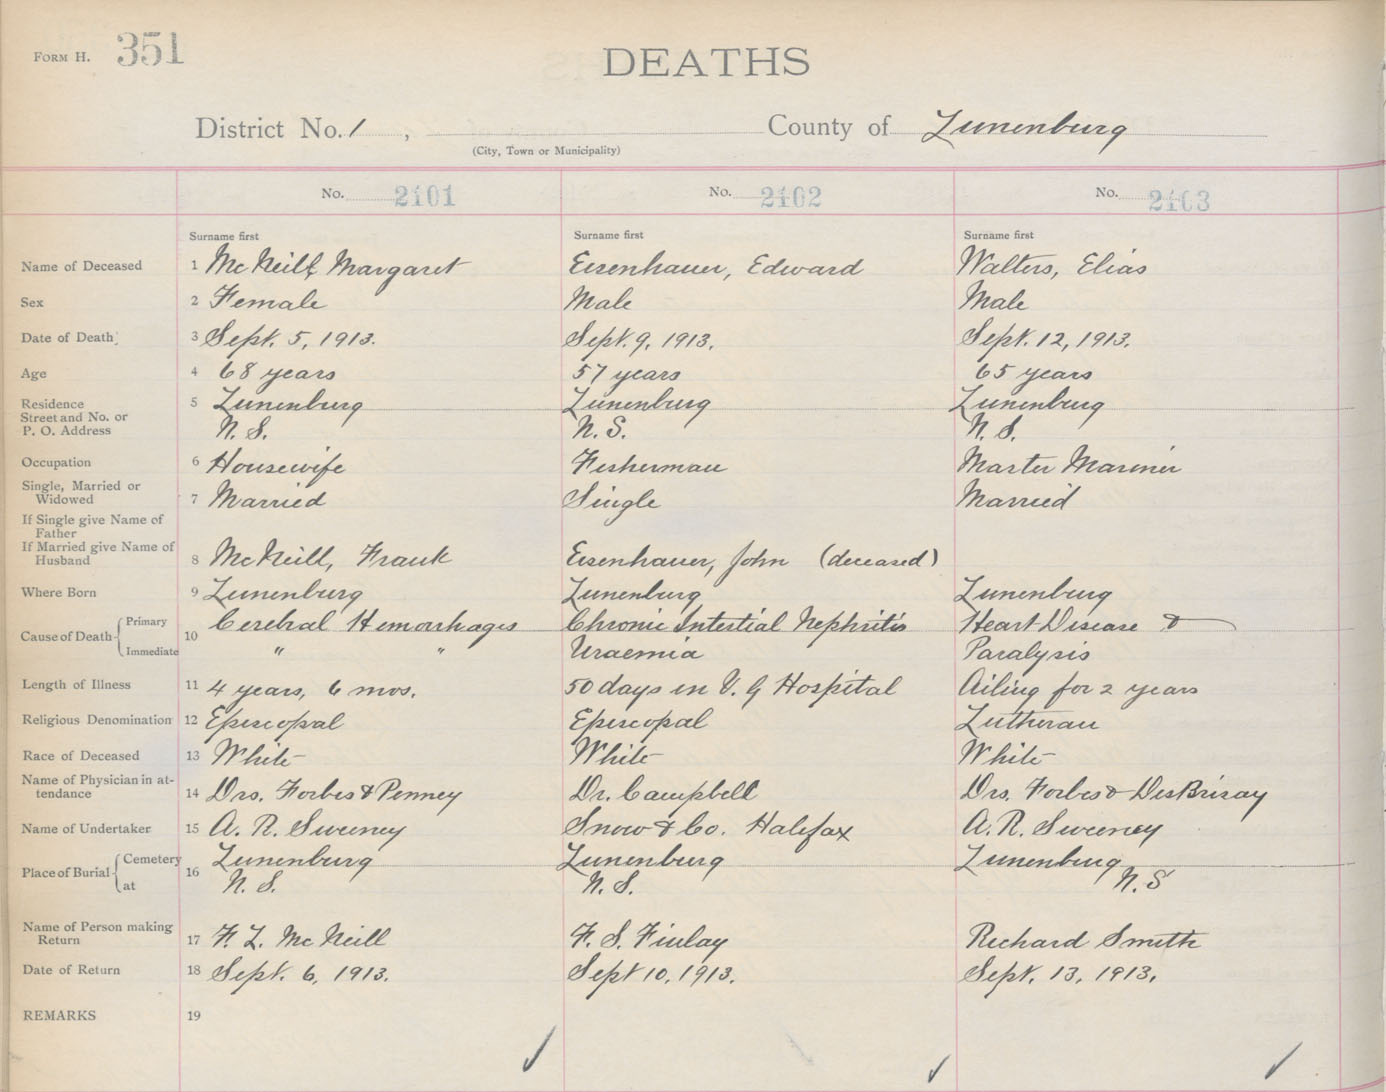 FORM H. 351
DEATHS
District No. 1 , County of Lunenburg
(City, Town or Municipality)
No. 2101 No. 2102 No. 2103
Surname first Surname first Surname first
Name of Deceased 1 McNeill, Margaret Eisenhauer, Edward Walters, Elias
Sex 2 Female Male Male
Date of Death 3 Sept. 5, 1913. Sept. 9, 1913. Sept. 12, 1913.
Age 4 68 years 57 years 65 years
Residence 5 Lunenburg Lunenburg Lunenburg
Street and No. or
P. O. Address N. S. N. S. N. S.
Occupation 6 Housewife Fisherman Master Mariner
Single, Married or
Widowed 7 Married Single Married
If Single give Name of
Father
If Married give Name of
Husband 8 McNeill, Frank Eisenhauer, John (deceased)
Where Born 9 Lunenburg Lunenburg Lunenburg
Cause of Death 10 Primary Cerebral Hemorrhages Chronic Intestial Nephritis Heart Disease &
Immediate " " Uraemia Paralysis
Length of Illness 11 4 years, 6 mos. 50 days in V. G Hospital Ailing for 2 years
Religious Denomination 12 Episcopal Episcopal Lutheran
Race of Deceased 13 White White White
Name of Physician in at-
tendance 14 Drs. Forbes & Penney Dr. Campbell Drs. Forbes & DesBrisay
Name of Undertaker 15 A. R. Sweeney Snow & Co. Halifax A. R. Sweeney
Place of Burial 16 Cemetery Lunenburg Lunenburg Lunenburg
at N. S. N. S. N. S
Name of Person making
Return 17 F. L. McNeill F. S. Finlay Richard Smith
Date of Return 18 Sept. 6, 1913. Sept 10, 1913. Sept. 13, 1913.
REMARKS 19